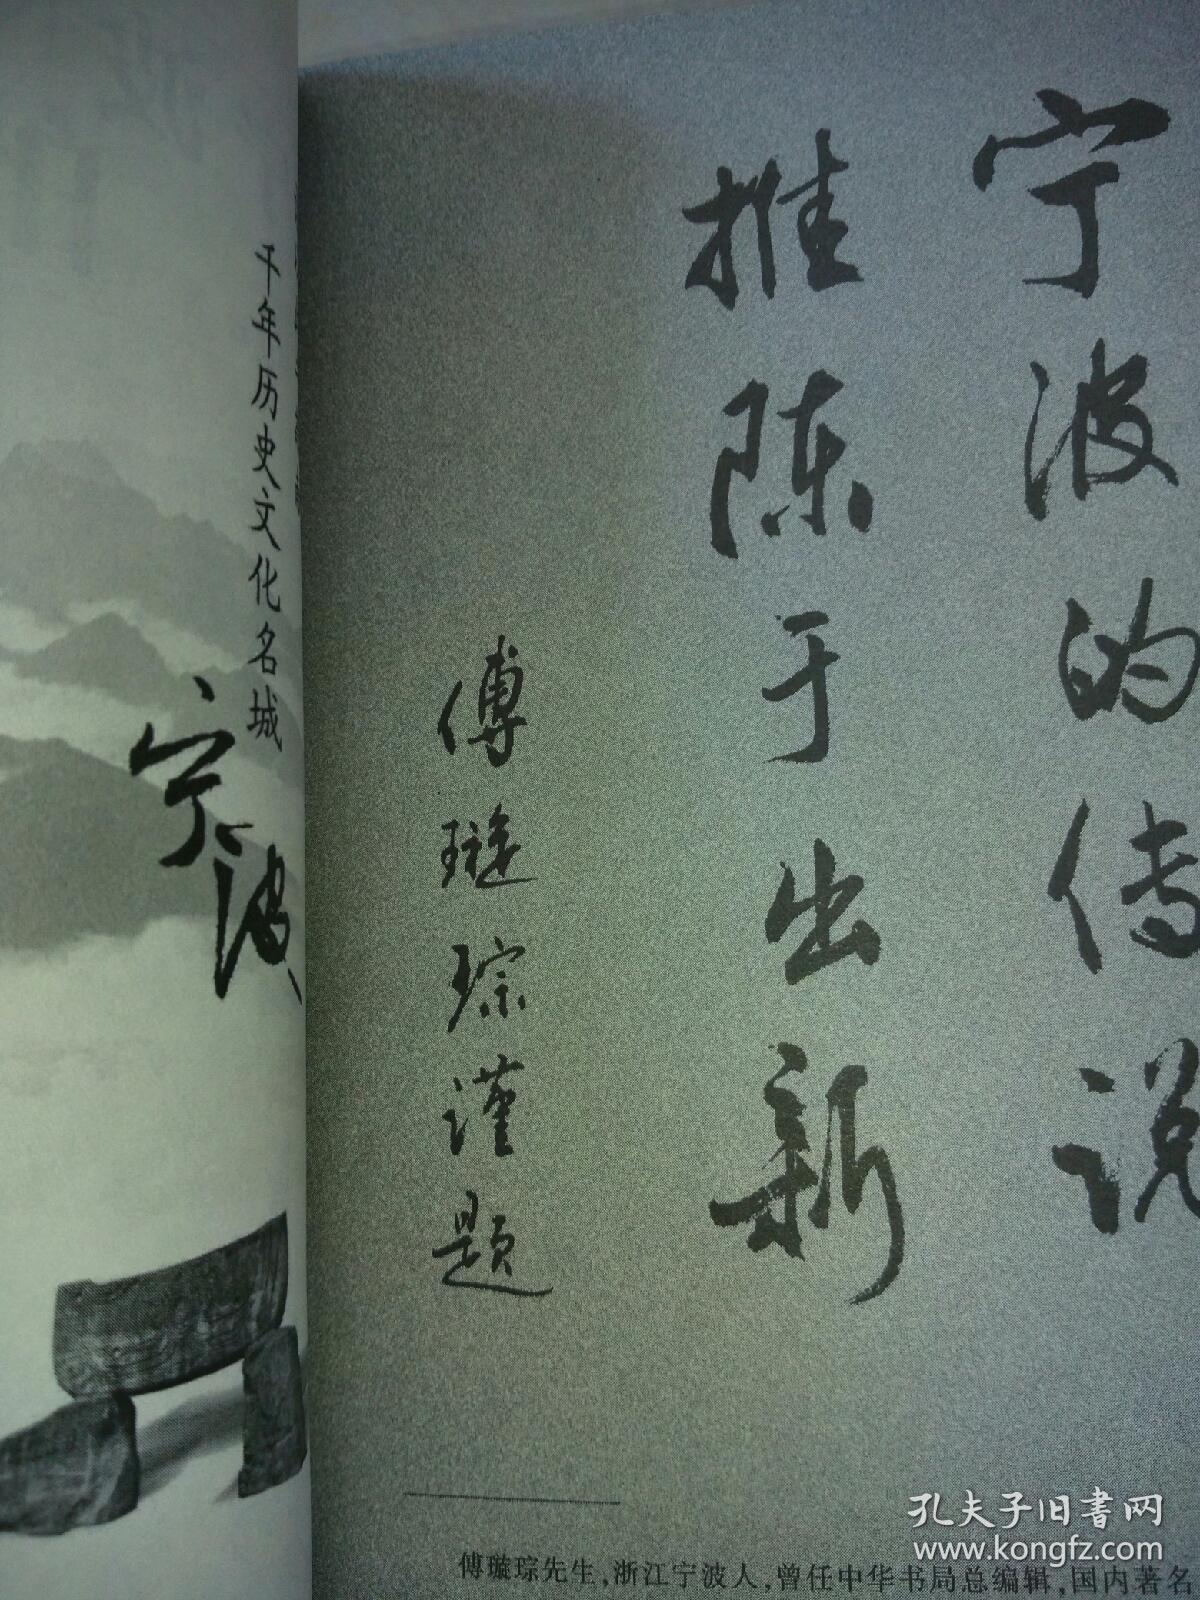 千年历史文化名城
宁波
宁波的传说
推陈于出新
傅璇琮谨题
傅璇琮先生,浙江宁波人,曾任中华书局总编辑,国内著名
孔夫子旧书网
www.kongfz.com